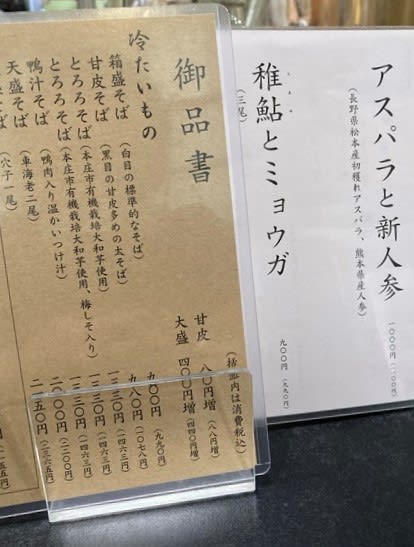 アスパラと新人参
(長野県松本産初穫れアスパラ、熊本県産人参)
一〇〇〇円(一一〇〇円)
稚鮎とミョウガ
(三尾)
九〇〇円(九九〇円)
御品書
(括弧内は消費税込)
甘皮 八〇円増(八八円増)
大盛 四〇〇円増(四四〇円増)
冷たいもの
箱盛そば(白目の標準的なそば) 九〇〇円(九九〇円)
甘皮そば(黒目の甘皮多めの太そば) 九八〇円(一〇七八円)
とろろそば(本庄市有機栽培大和芋使用) 一三三〇円(一四六三円)
とろろそば(本庄市有機栽培大和芋使用、梅しそ入り) 一三三〇円(一四六三円)
鴨汁そば(鴨肉入り温かいつけ汁) 一三三〇円(一四六三円)
天盛そば(車海老二尾) 二〇〇〇円(二二〇〇円)
そば(穴子一尾) 二一五〇円(二三六五円)